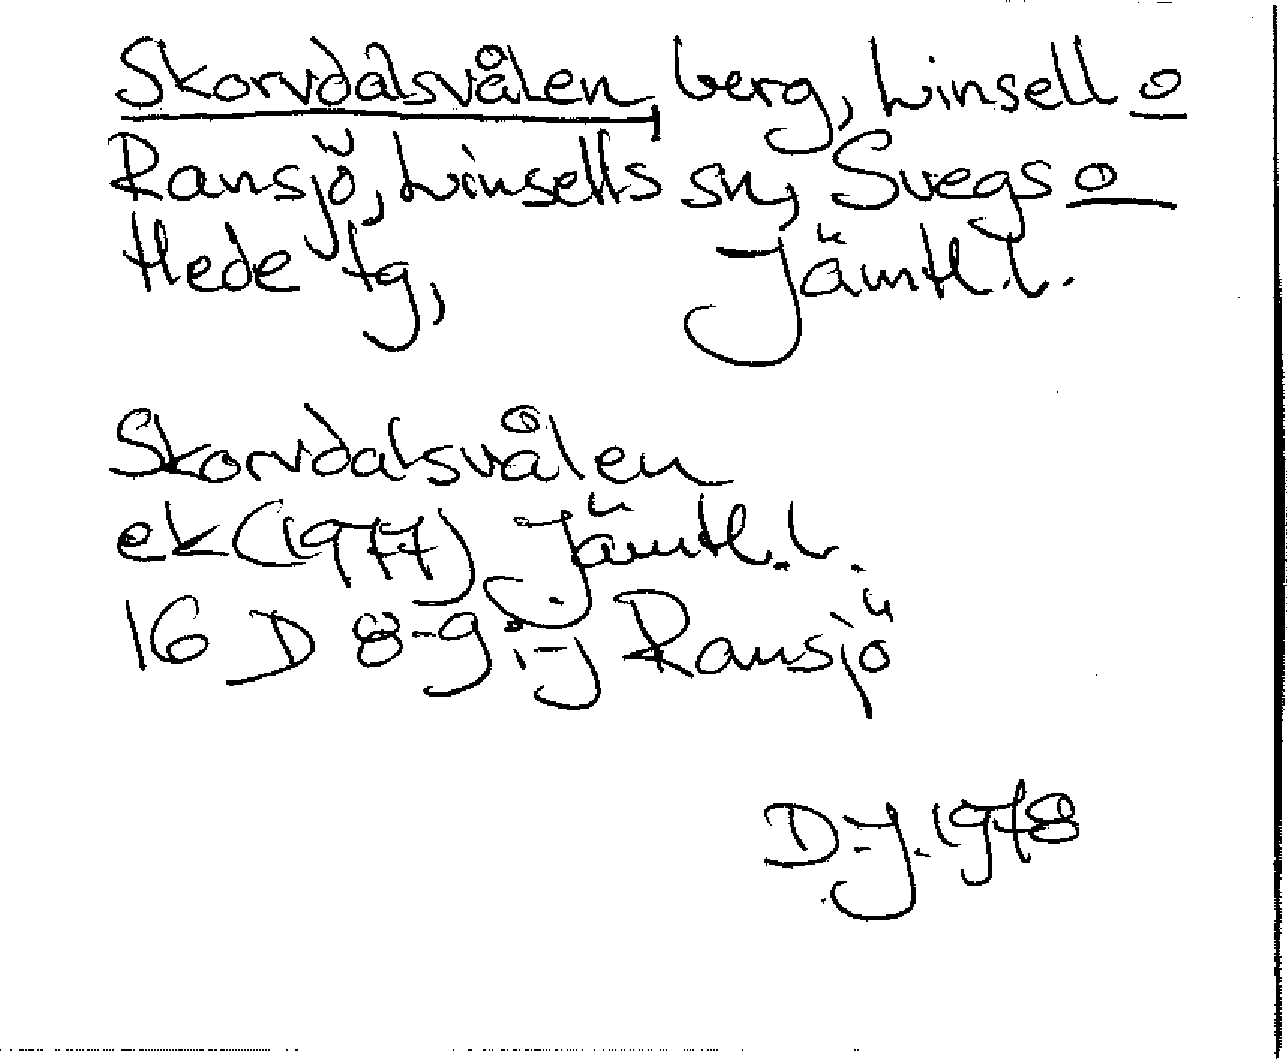 Skorvdalsvålen berg, Linsell o
Ransjö, Linsells sn, Svegs o
Hede tg, Jämtl.l.
Skorvdalsvålen
ek (1977) Jämtl.l.
16 D 8-9 i-j Ransjö
D-J. 1978